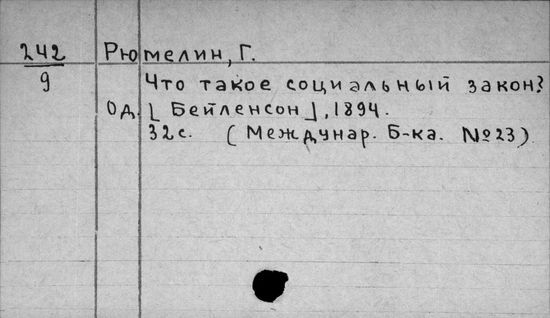 242
9
Рюмелин, Г.
Что такое социальный закон?
Од. [Бейленсон], 1894.
32с. (Междунар. Б-ка. №23)